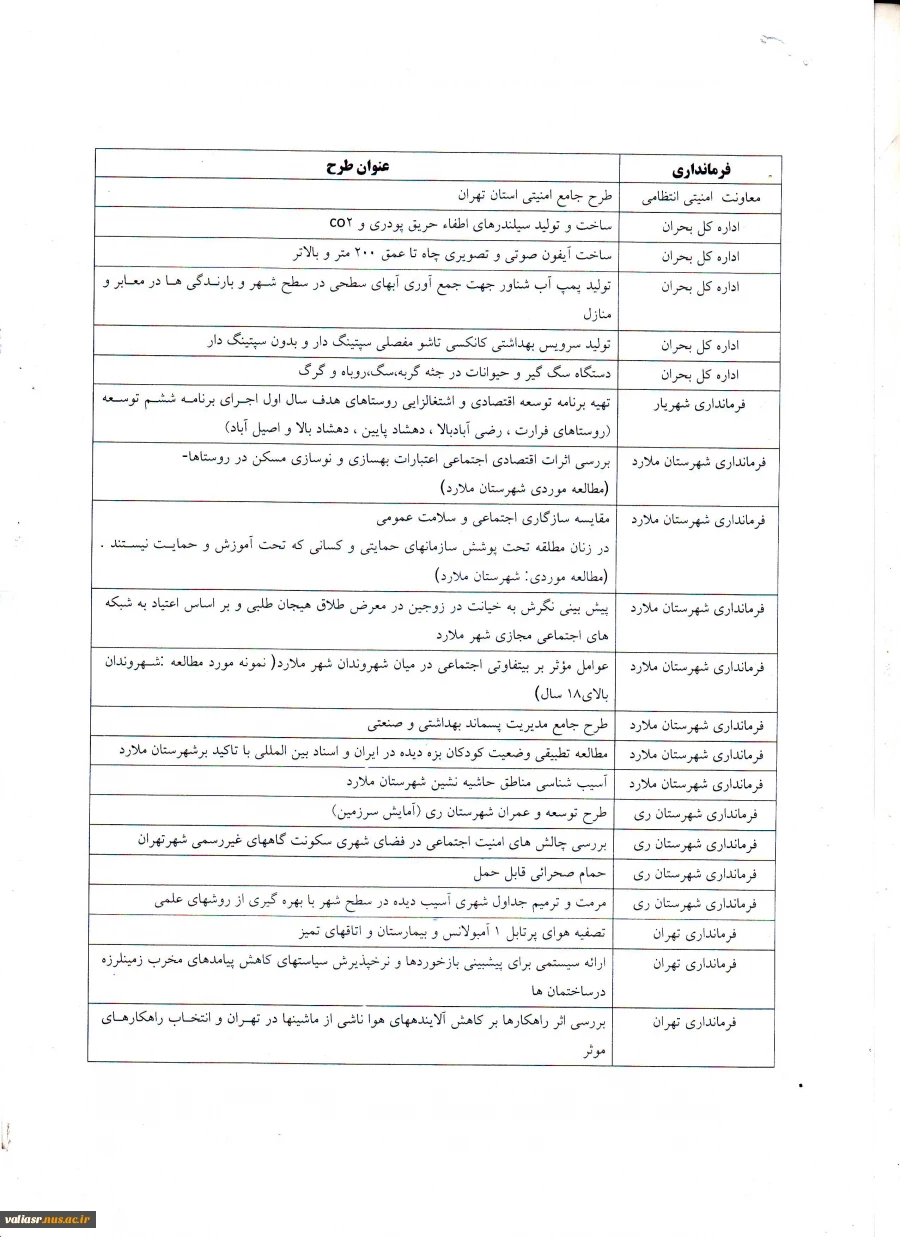 فرمانداری عنوان طرح
معاونت امنیتی انتظامی طرح جامع امنیتی استان تهران
اداره کل بحران ساخت و تولید سیلندرهای اطفاء حریق پودری و co۲
اداره کل بحران ساخت آیفون صوتی و تصویری چاه تا عمق ۲۰۰ متر و بالاتر
اداره کل بحران تولید پمپ آب شناور جهت جمع آوری آبهای سطحی در سطح شهر و بارندگی ها در معابر و
منازل
اداره کل بحران تولید سرویس بهداشتی کانکسی تاشو مفصلی سپتینگ دار و بدون سپتینگ دار
اداره کل بحران دستگاه سگ گیر و حیوانات در جثه گربه،سگ،روباه و گرگ
فرمانداری شهریار تهیه برنامه توسعه اقتصادی و اشتغالزایی روستاهای هدف سال اول اجرای برنامه ششم توسعه
(روستاهای فرارت ، رضی آبادبالا ، دهشاد پایین ، دهشاد بالا و اصیل آباد)
فرمانداری شهرستان ملارد بررسی اثرات اقتصادی اجتماعی اعتبارات بهسازی و نوسازی مسکن در روستاها-
(مطالعه موردی شهرستان ملارد)
فرمانداری شهرستان ملارد مقایسه سازگاری اجتماعی و سلامت عمومی
در زنان مطلقه تحت پوشش سازمانهای حمایتی و کسانی که تحت آموزش و حمایت نیستند .
(مطالعه موردی: شهرستان ملارد)
فرمانداری شهرستان ملارد پیش بینی نگرش به خیانت در زوجین در معرض طلاق هیجان طلبی و بر اساس اعتیاد به شبکه
های اجتماعی مجازی شهر ملارد
فرمانداری شهرستان ملارد عوامل مؤثر بر بیتفاوتی اجتماعی در میان شهروندان شهر ملارد( نمونه مورد مطالعه :شهروندان
بالای۱۸ سال)
فرمانداری شهرستان ملارد طرح جامع مدیریت پسماند بهداشتی و صنعتی
فرمانداری شهرستان ملارد مطالعه تطبیقی وضعیت کودکان بزه دیده در ایران و اسناد بین المللی با تاکید برشهرستان ملارد
فرمانداری شهرستان ملارد آسیب شناسی مناطق حاشیه نشین شهرستان ملارد
فرمانداری شهرستان ری طرح توسعه و عمران شهرستان ری (آمایش سرزمین)
فرمانداری شهرستان ری بررسی چالش های امنیت اجتماعی در فضای شهری سکونت گاههای غیررسمی شهرتهران
فرمانداری شهرستان ری حمام صحرائی قابل حمل
فرمانداری شهرستان ری مرمت و ترمیم جداول شهری آسیب دیده در سطح شهر با بهره گیری از روشهای علمی
فرمانداری تهران تصفیه هوای پرتابل ۱ آمبولانس و بیمارستان و اتاقهای تمیز
فرمانداری تهران ارائه سیستمی برای پیشبینی بازخوردها و نرخپذیرش سیاستهای کاهش پیامدهای مخرب زمینلرزه
درساختمان ها
فرمانداری تهران بررسی اثر راهکارها بر کاهش آلایندههای هوا ناشی از ماشینها در تهران و انتخاب راهکارهای
موثر
valiasr.nus.ac.ir